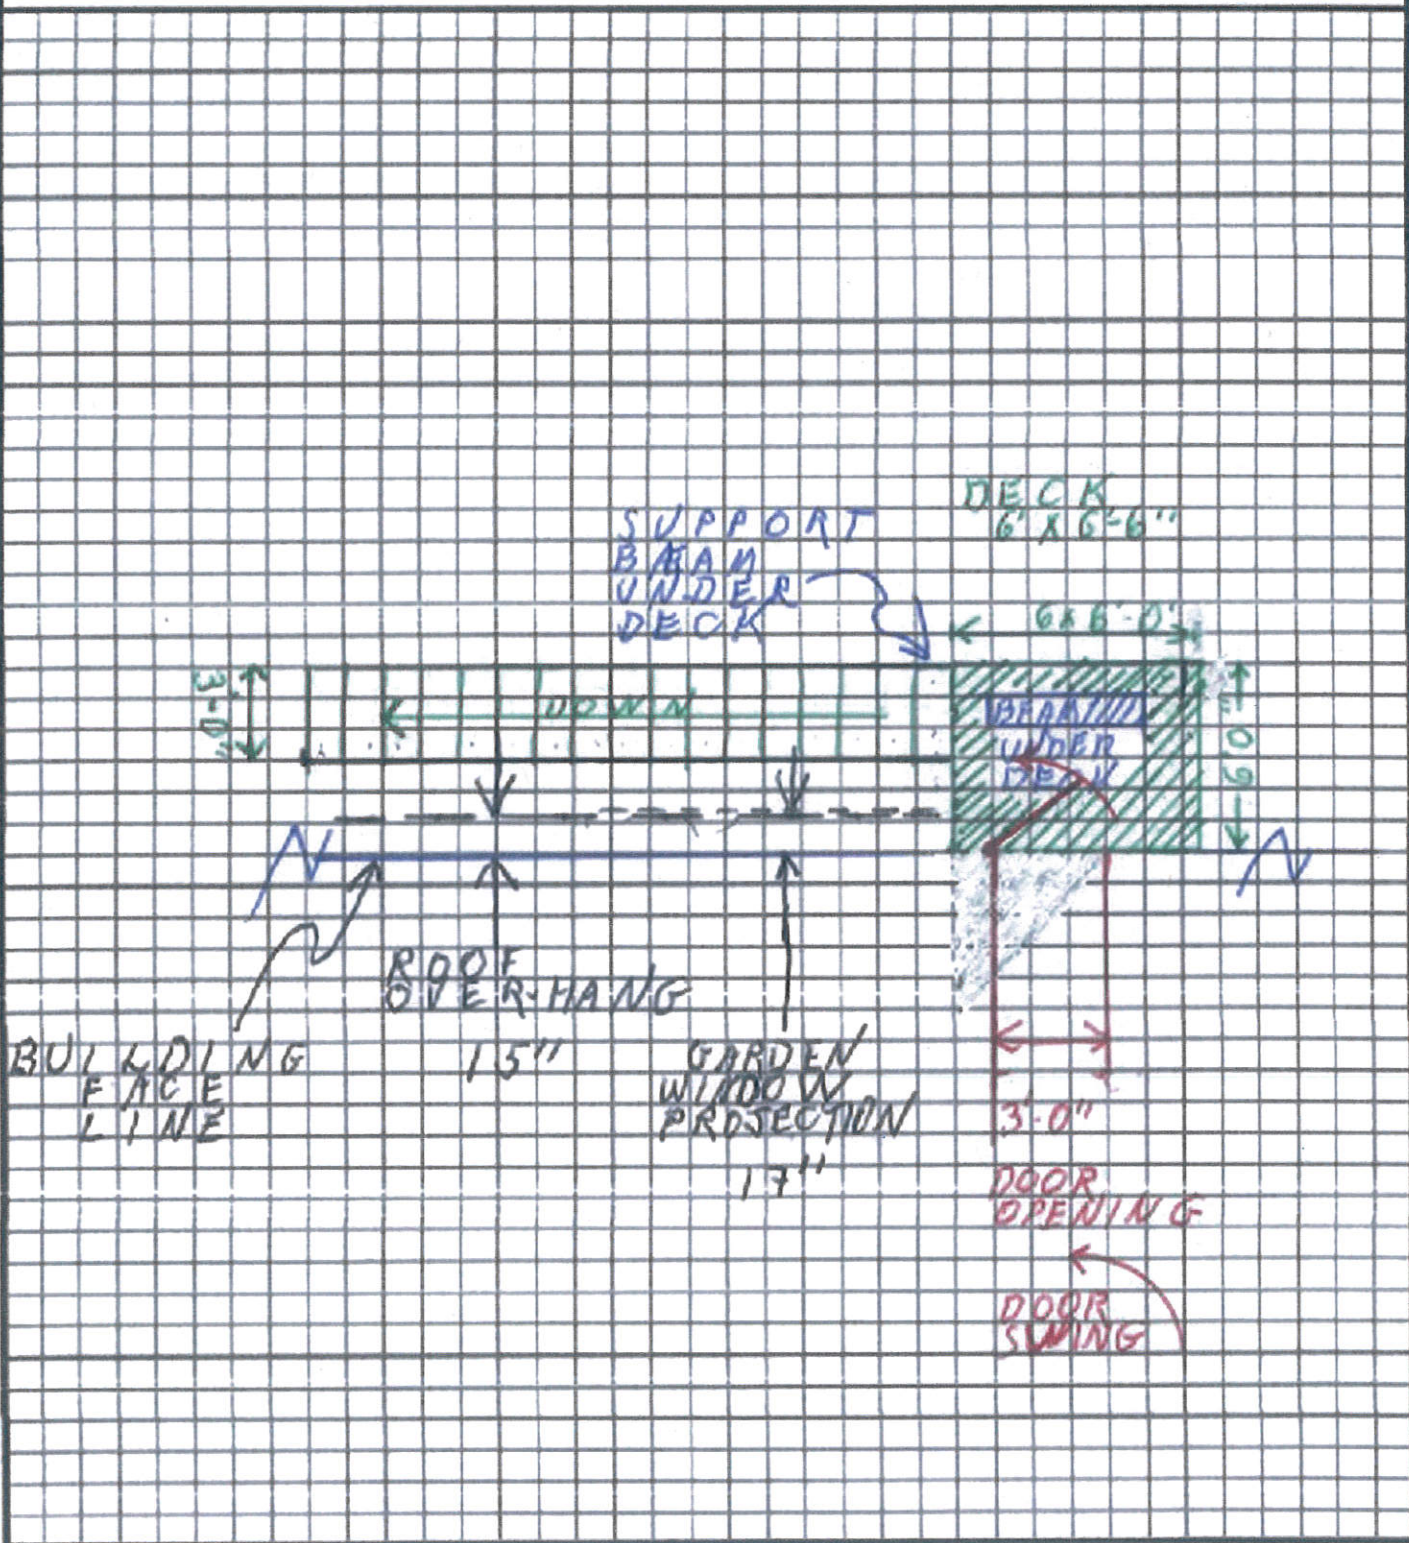 DECK
6' X 6'-6"
SUPPORT
BEAM
UNDER
DECK
3'-0"
DOWN
BEAM
UNDER
DECK
ROOF
OVER-HANG
15"
BUILDING
FACE
LINE
GARDEN
WINDOW
PROJECTION
17"
3'-0"
DOOR
OPENING
DOOR
SWING